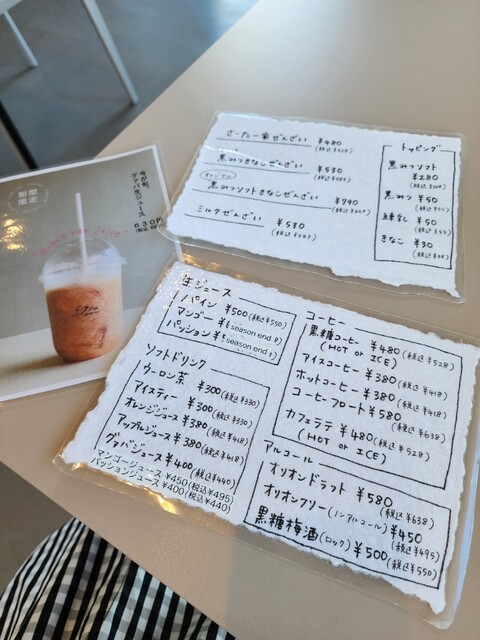 期間
限定
今が旬、
グァバ生ジュース
630円
さーたー家ぜんざい ¥480
黒みつきなこぜんざい ¥530
黒みつソフトきなこぜんざい ¥790
ミルクぜんざい ¥530
トッピング
黒みつソフト
¥280
黒みつ ¥50
練乳 ¥50
きなこ ¥30
生ジュース
パイン ¥500(税込¥550)
マンゴー ¥(season end)
パッション ¥(season end)
ソフトドリンク
ウーロン茶 ¥300(税込¥330)
アイスティー ¥300(税込¥330)
オレンジジュース ¥380(税込¥418)
アップルジュース ¥380(税込¥418)
グァバジュース ¥400(税込¥440)
マンゴージュース ¥450(税込¥495)
パッションジュース ¥400(税込¥440)
コーヒー
黒糖コーヒー ¥480(税込¥528)
(HOT or ICE)
アイスコーヒー ¥380(税込¥418)
ホットコーヒー ¥380(税込¥418)
コーヒーフロート ¥580
(税込¥638)
カフェラテ ¥480(税込¥528)
(HOT or ICE)
アルコール
オリオンドラフト ¥580
(税込¥638)
オリオンフリー(ノンアルコール) ¥450
(税込¥495)
黒糖梅酒(ロック) ¥500
(税込¥550)